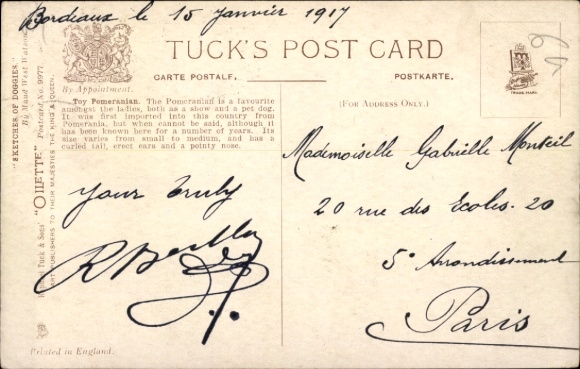 Bordeaux le 15 Janvier 1917
TUCK'S POST CARD
By Appointment.
CARTE POSTALE.
POSTKARTE.
(FOR ADDRESS ONLY.)
TRADE MARK
Toy Pomeranian. The Pomeranian is a favourite
amongst the ladies, both as a show and a pet dog.
It was first imported into this country from
Pomerania, but when cannot be said, although it
has been known here for a number of years. Its
size varies from small to medium, and has a
curled tail, erect ears and a pointy nose.
"SKETCHES OF DOGGIES."
By Maud West Watson
Raphael Tuck & Sons' "OILETTE" Postcard No. 9977
ART PUBLISHERS TO THEIR MAJESTIES THE KING & QUEEN.
Your truly
Mademoiselle Gabrielle Monteil
20 rue des Ecoles. 20
5° Arrondissement
Paris
Printed in England.